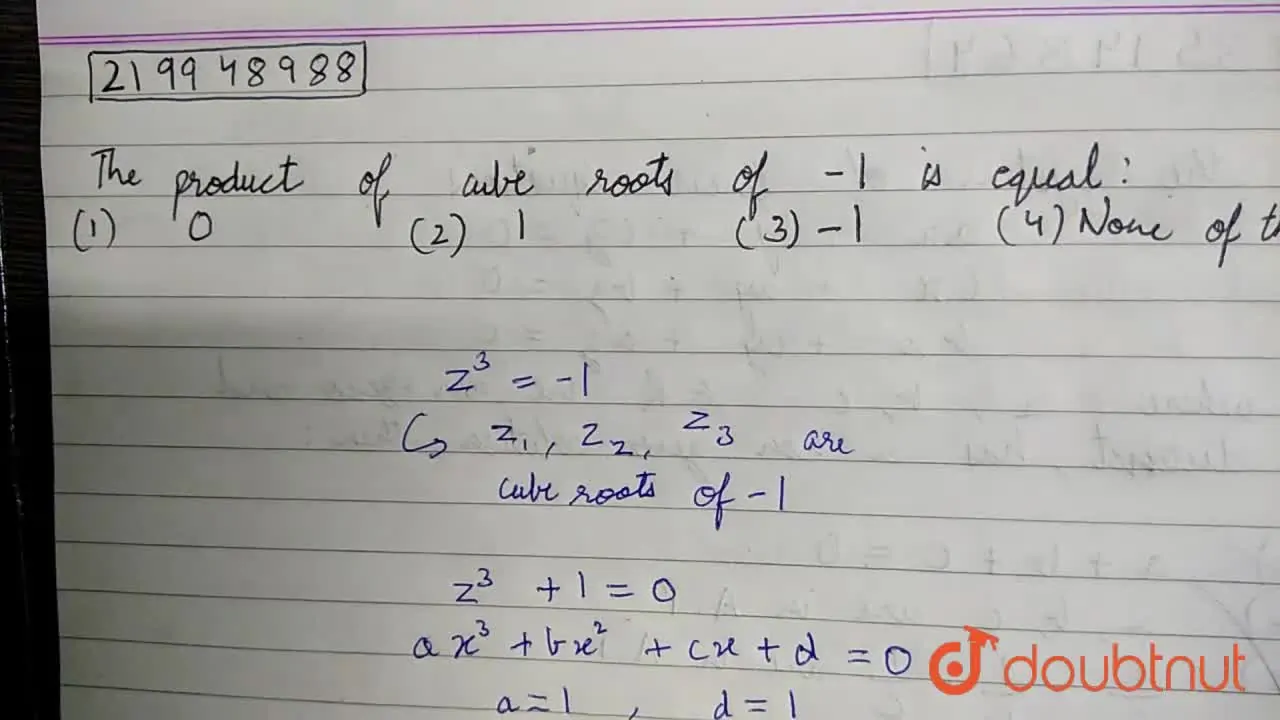 2199948988
The product of cube roots of -1 is equal:
(1) 0 (2) 1 (3) -1 (4) None of
z³ = -1
z₁, z₂, z₃ are
cube roots of -1
z³ + 1 = 0
ax³ + bx² + cx + d = 0
a = 1, d = 1
doubtnut